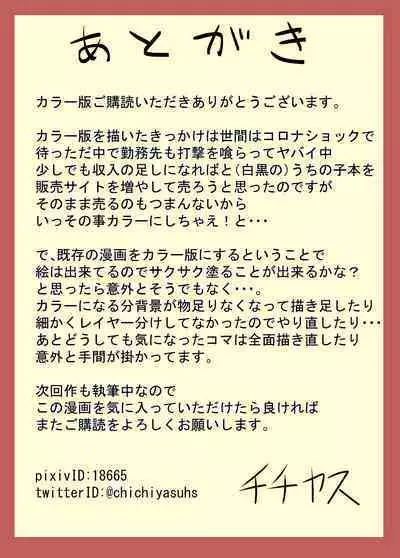 あとがき
カラー版ご購読いただきありがとうございます。
カラー版を描いたきっかけは世間はコロナショックで
待っただ中で勤務先も打撃を喰らってヤバイ中
少しでも収入の足しになればと(白黒の)うちの子本を
販売サイトを増やして売ろうと思ったのですが
そのまま売るのもつまんないから
いっその事カラーにしちゃえ！と・・・
で、既存の漫画をカラー版にするということで
絵は出来てるのでサクサク塗ることが出来るかな？
と思ったら意外とそうでもなく・・・。
カラーになる分背景が物足りなくなって描き足したり
細かくレイヤー分けしてなかったのでやり直したり・・・
あとどうしても気になったコマは全面描き直したり
意外と手間が掛かってます。
次回作も執筆中なので
この漫画を気に入っていただけたら良ければ
またご購読をよろしくお願いします。
pixivID:18665
twitterID:@chichiyasuhs
チチヤス